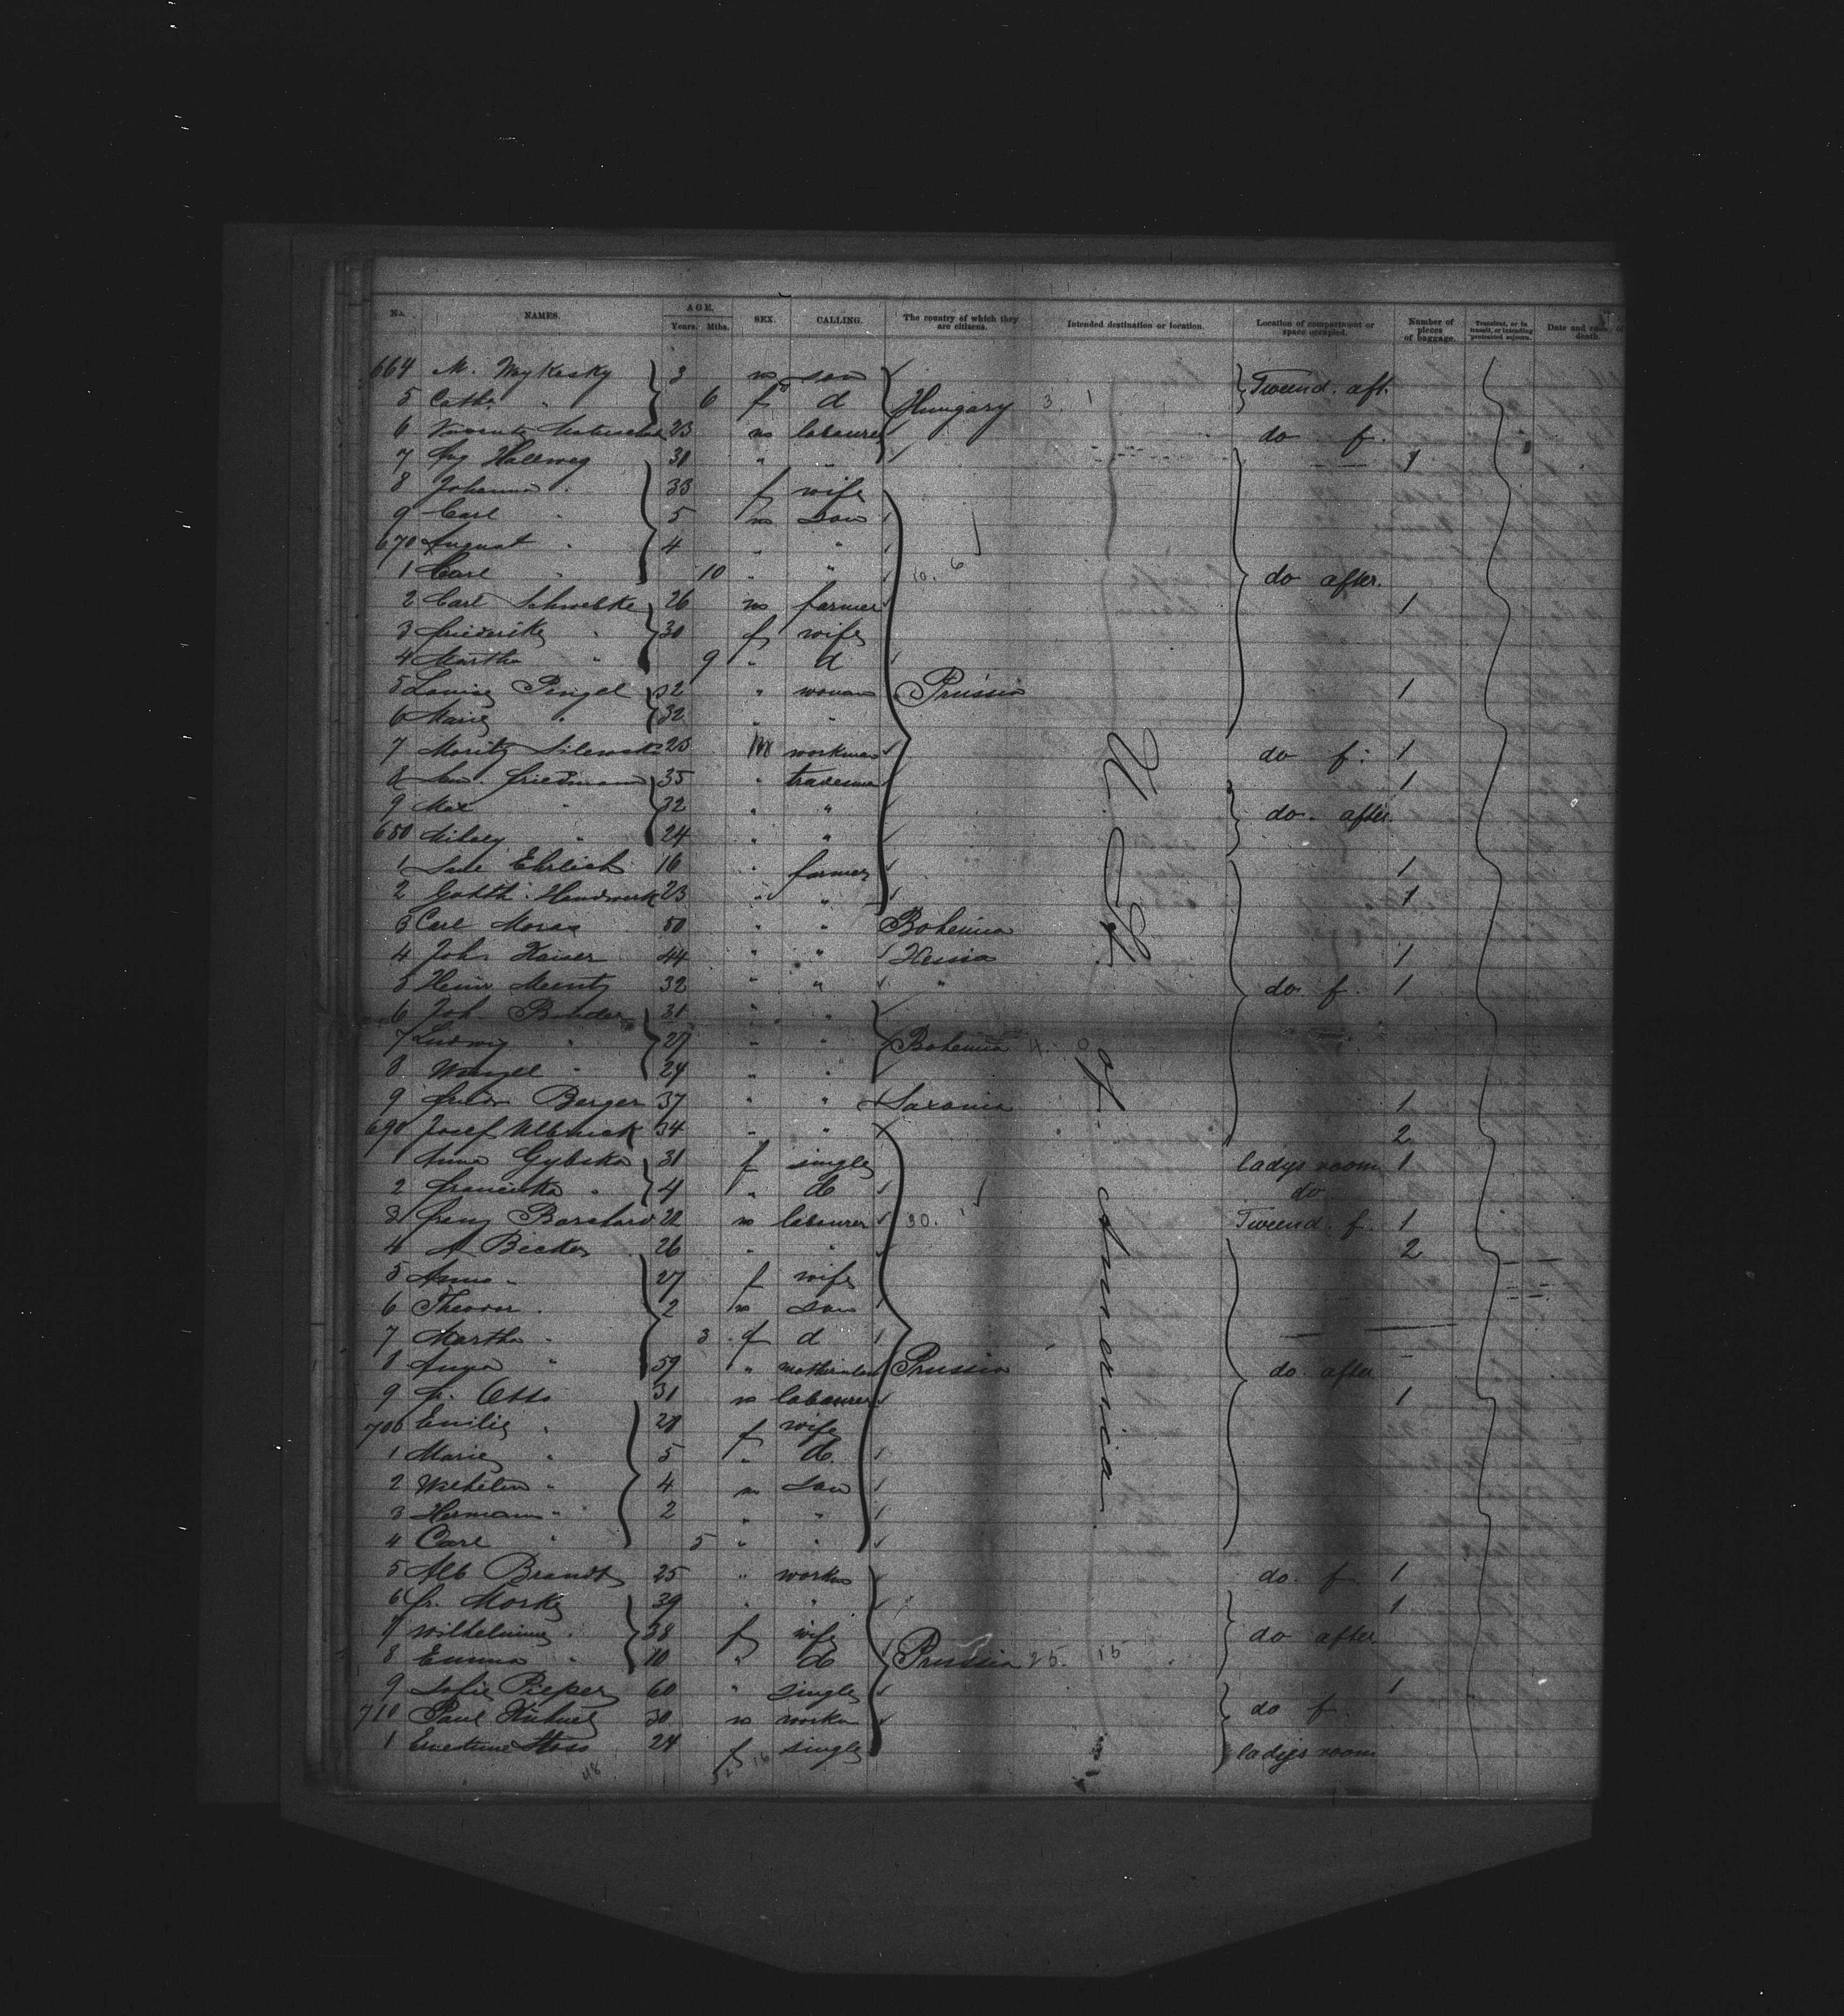 No. NAMES. AGE. Years. Mths. SEX. CALLING. The country of which they are citizens. Intended destination or location. Location of compartment or space occupied. Number of pieces of baggage. Transient, or in transit, or intending protracted sojourn. Date and cause of death.
664 M. Wykasky 3 m son Tweend. aft.
5 Cath. " 6 f d Hungary 3. 1
6 23 m labourer do f.
7 Aug Hallweg 31 " " 1
8 Johanna " 33 f wife
9 Carl " 5 m son
670 August " 4 " "
1 Carl " 10 " " 10. 6 do after.
2 Carl Schwebke 26 m farmer 1
3 Friederike " 30 f wife
4 Martha " 9 " d
5 Louise Pingel 32 " woman Prussia 1
6 Marie " 32 " "
7 Moritz 25 m workman do f. 1
8 Friedmann 35 " tradesman 1
9 Max " 32 " " do. after
680 " 24 " "
1 Ehrlich 16 " farmer 1
2 Gotth. Handwerk 23 " " 1
3 Carl Moras 50 " " Bohemia
4 Joh. Kaiser 44 " " Hessia 1
5 Heinr Meentz 32 " " " do. f. 1
6 Joh. 31 " "
7 Ludwig " 27 " " Bohemia 4. 0
8 Wenzel " 24 " "
9 Berger 37 " " Saxonia 1
690 Josef 34 " " 2
1 Anna Gybska 31 f single ladys room 1
2 Franciska " 4 " d do
3 Franz Borchard 22 m labourer 30. 1 Tweend. f. 1
4 A Becker 26 " " 2
5 Anna " 27 f wife
6 Theodor " 2 m son
7 Martha " 3 f d
8 Anna " 59 " motherinlaw Prussia do. after
9 Fr. Otto 31 m labourer 1
700 Emilie " 28 f wife
1 Marie " 5 " d
2 Wilhelm " 4 m son
3 Hermann " 2 " "
4 Carl " 5 " "
5 Alb Brandt 25 " workm do. f 1
6 Fr. Morke 39 " " 1
7 Wilhelmine " 38 f wife do after
8 Emma " 10 " d Prussia 25. 15
9 Sofie Pieper 60 " single 1
710 Paul Kühnel 30 m workm do f.
1 Ernestine Hoss 24 f single ladys room
U. St. of America.
48 32 16